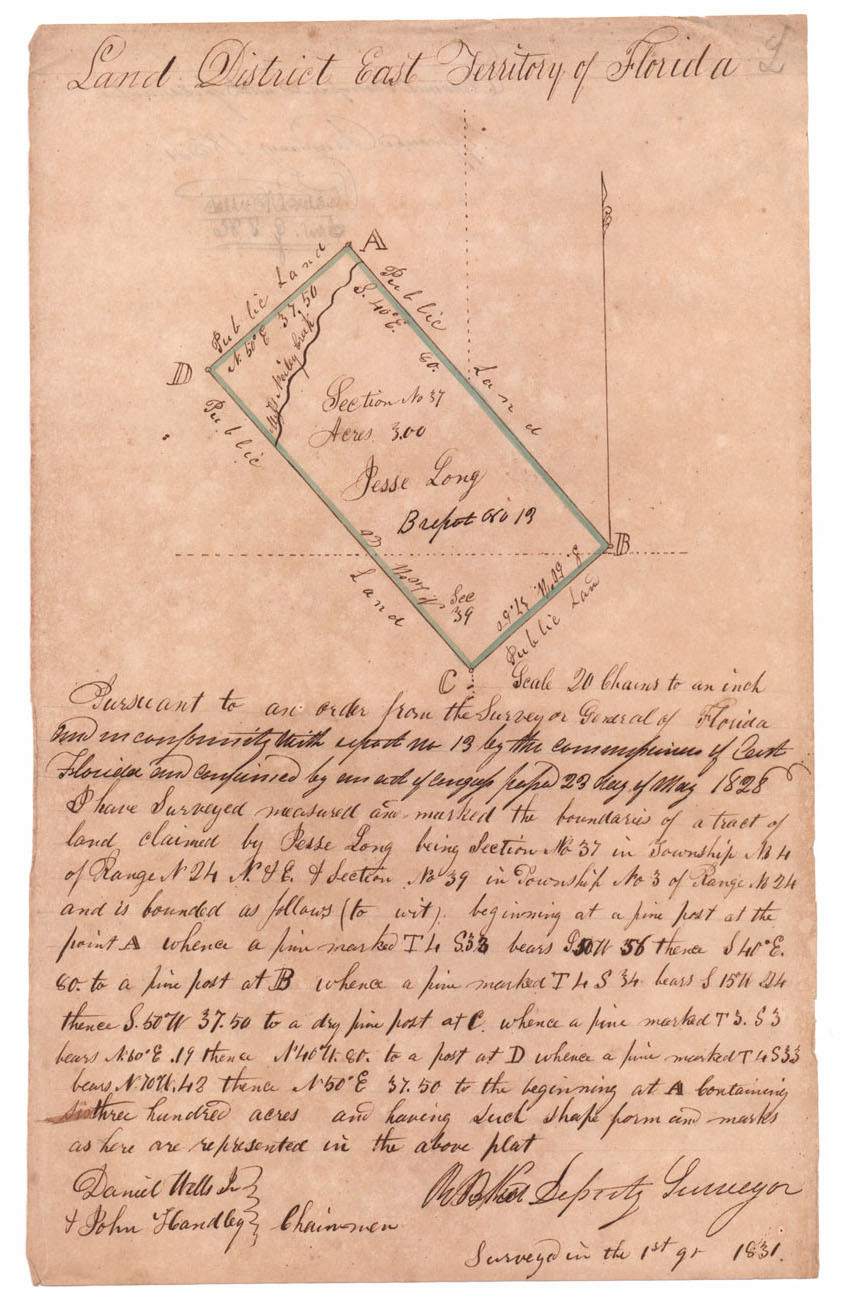 Land District East Territory of Florida
A
Public Land
N. 50° E 37.50
Public Land
S. 40° E. 80.
D
Public Land
Section No 37
Acres 300
Jesse Long
B report No 13
B
80 N 40 W
Sec
39
S. 50 W. 37.50
Public Lan
C
Scale 20 Chains to an inch
Pursuant to an order from the Surveyor General of Florida
and in conformity with report no 13 by the commissioners of East
Florida and confirmed by an act of congress passed 23 day of May 1828
I have Surveyed measured and marked the boundaries of a tract of
land claimed by Jesse Long being Section No 37 in Township No 4
of Range N 24 N. & E. & Section No 39 in Township No 3 of Range No 24
and is bounded as follows (to wit). beginning at a pine post at the
point A whence a pine marked T 4 S.33 bears S50W 56 thence S 40° E.
80. to a pine post at B whence a pine marked T 4 S 34 bears S 15W 24
thence S. 50 W 37.50 to a dry pine post at C. whence a pine marked T 3. S 3
bears N.60° E .19 thence N 40 W. 80. to a post at D whence a pine marked T 4 S33
bears N.70W. 42 thence N 50° E 37.50 to the beginning at A Containing
three hundred acres and having such shape form and marks
as here are represented in the above plat
Daniel Wells Jr
& John Handley Chainmen
Deputy Surveyor
Surveyed in the 1st qr 1831.